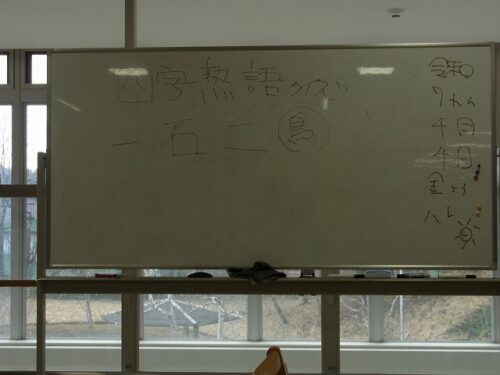 四字熟語クイズ
一石二鳥
令和
7年
4月
4日
金よう
ハレ